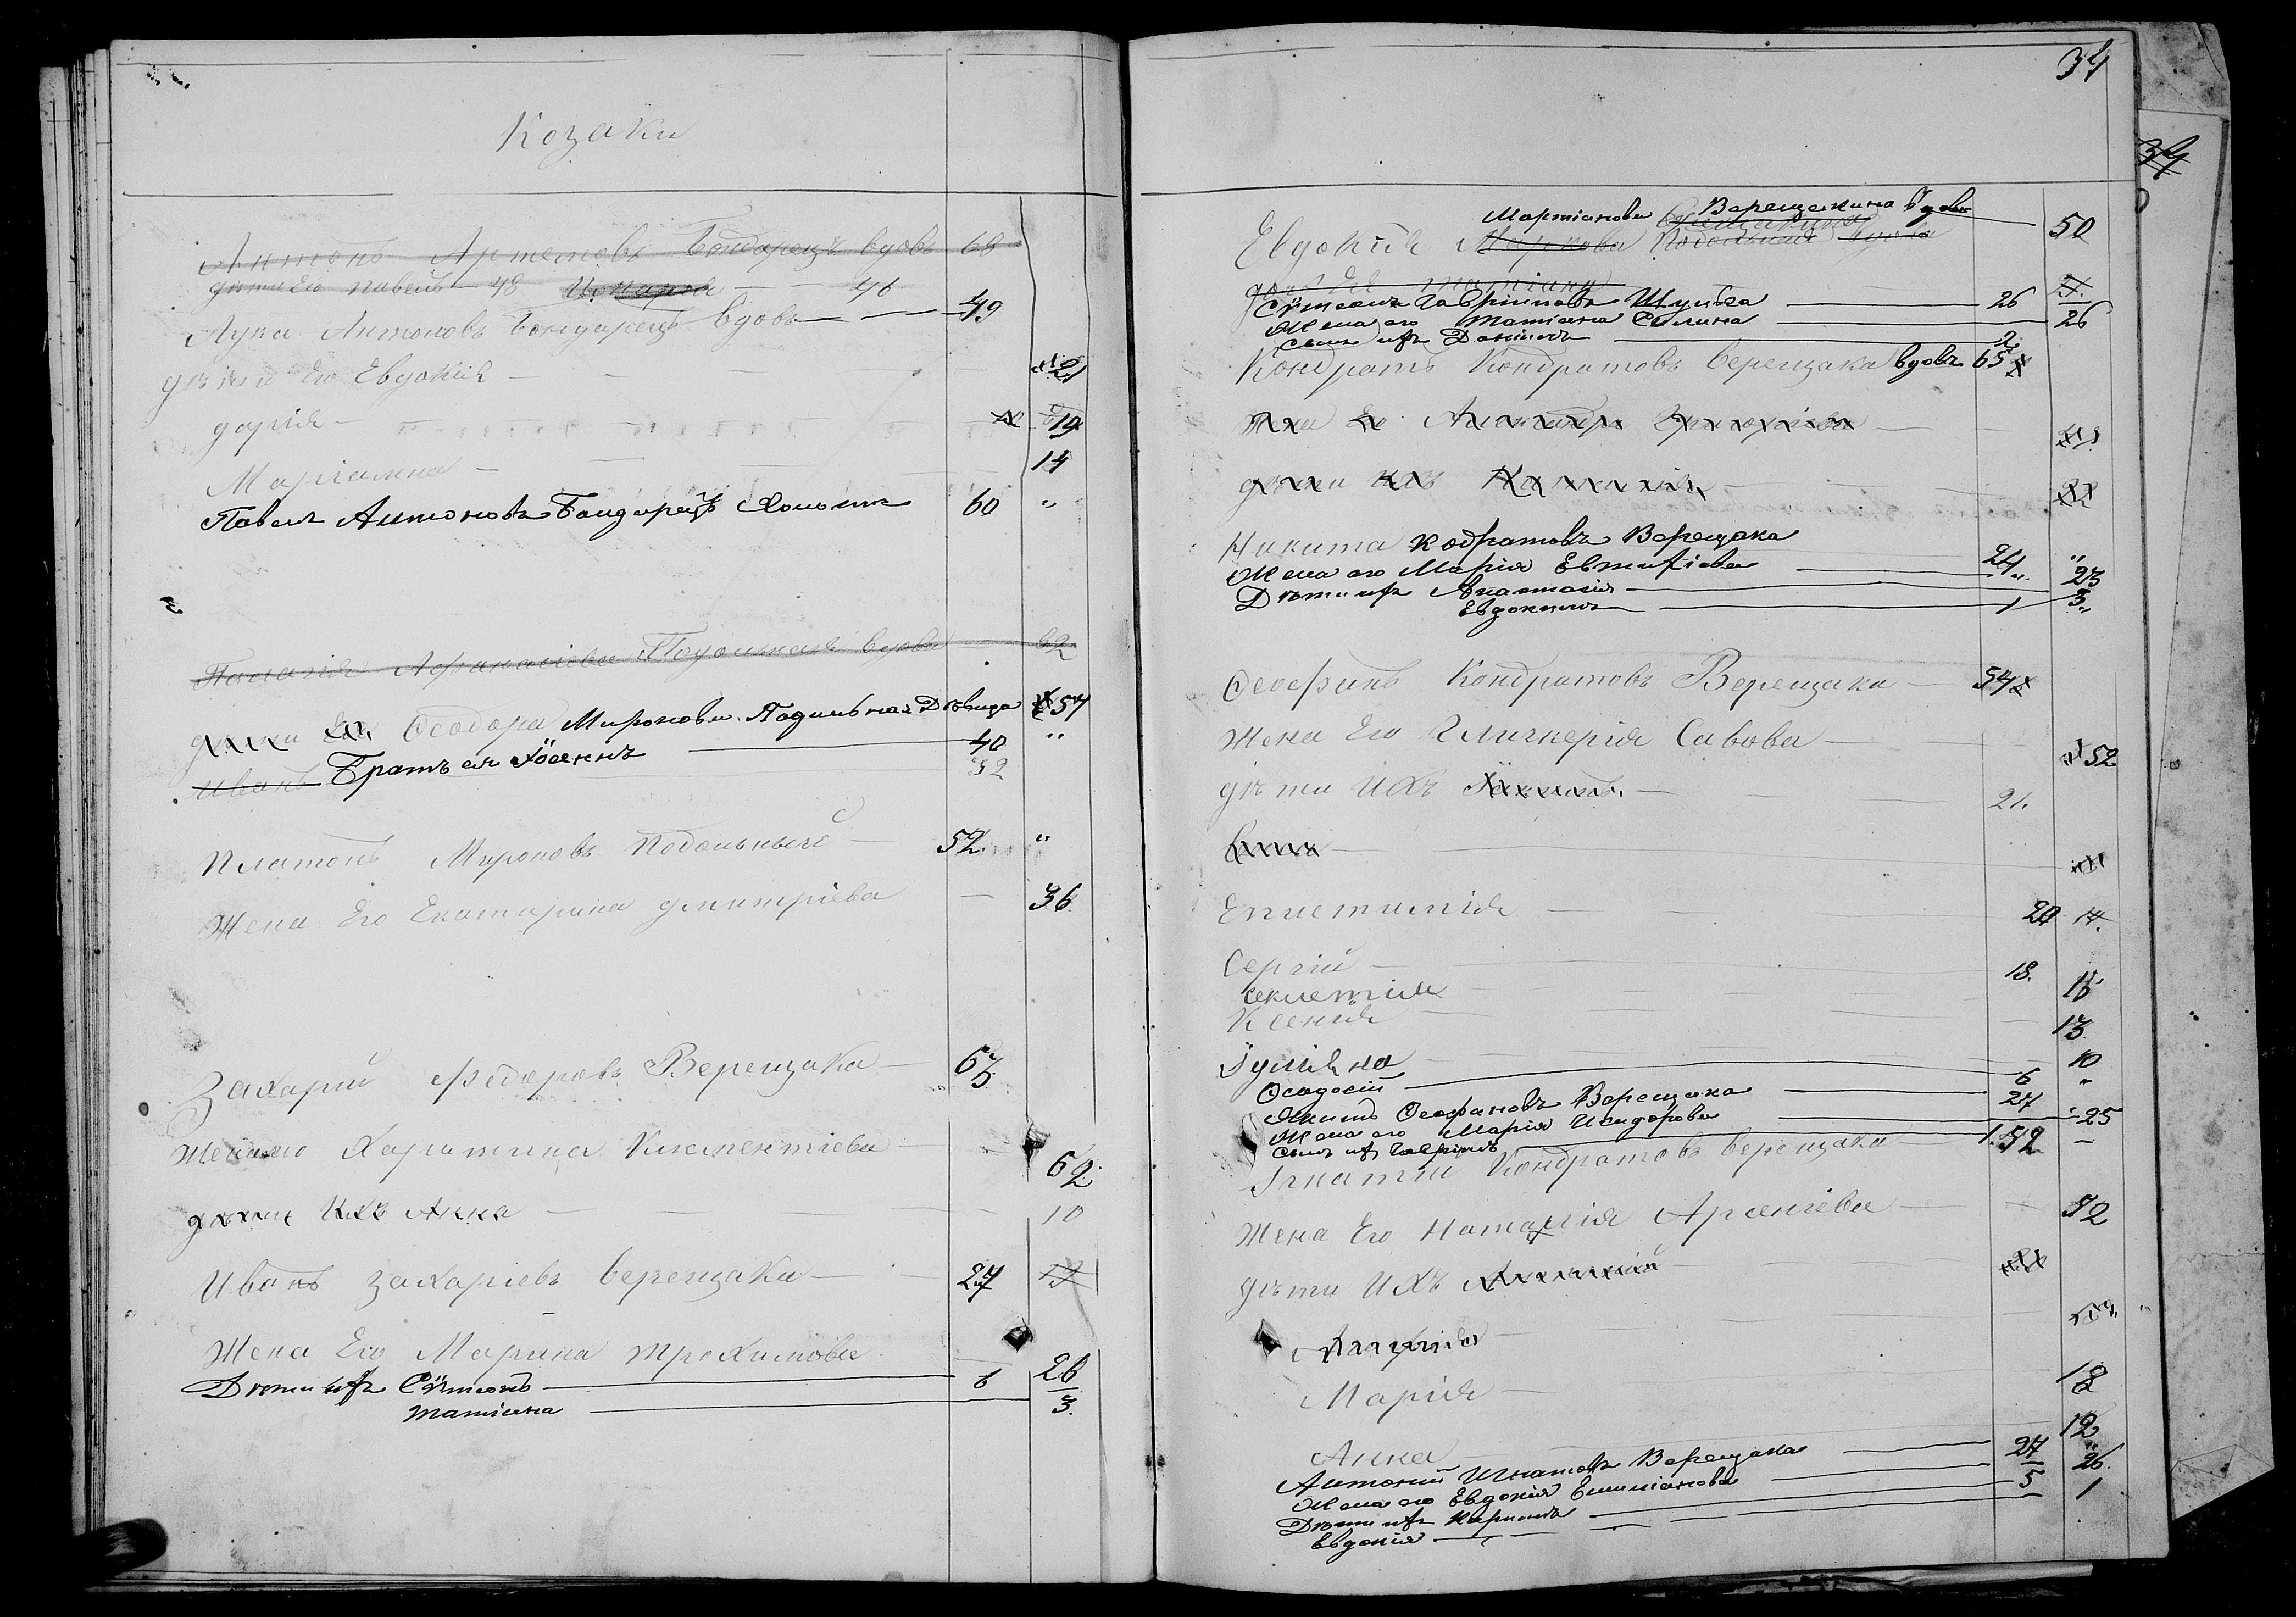 Козаки
Антонъ Артемовъ Бондарецъ вдовъ 68
дети Его павелъ 48 46
Лука Антоновъ Бондарецъ вдовъ 49
дѣти Его Евдокія 21
дарія 19
Маріамна 14
Павелъ Антоновъ Бондарецъ Холост 60 "
Афанасіева Подольная вдова 62
Ѳеодора Миронова Подильная Дѣвица 57
иванъ Братъ ея Іоаннъ 40 "
32
Платонъ Мироновъ Подольный 52 "
Жена Его Екатерина дмитріева 36
Захарій Федоровъ Верещака 63
Жена его Харитина Климентіева 62
дѣти Ихъ Анна 10
Иванъ Захаріевъ Верещака 27
Жена Его Марина Трохимова 26
Дѣти ихъ Сѵмеонъ 6
Татіана 3
34
34
Мартіанова Верещакина Вдова
Евдокія Маркова Подольная вдова 50
Сѵмеонъ Гавриловъ Шульга 26
Жена его Татіана Силина 26
Сынъ ихъ Даніилъ 2
Кондратъ Кондратовъ Верещака вдовъ 65
Жена Его
дѣти Ихъ
Никита Кодратовъ Верещака 24 "
Жена его Марія Евтихіева " 23
Дѣти ихъ Анастасія 3
Евдокимъ 1 "
Ѳеофанъ Кондратовъ Верещака 54
Жена Его Гликерія Савова 52
дѣти Ихъ 21.
Епистимія 20
Сергій 18.
Секлетія 15
Ксенія 13
Іуліана 10
Ѳеодосій 6 "
Ѳеофановъ Верещака 27 "
Жена его Марія Исидорова 25
Сынъ ихъ Гавріилъ 1 —
Игнатій Кондратовъ Верещака 52
Жена Его Наталія Арсеніева 52
дѣти Ихъ
Марія 18
Анна 12
Антоній Игнатовъ Верещака 27 "
Жена его Евдокія Емиліанова 26.
Дѣти ихъ Карпъ 5
Евдокія 1